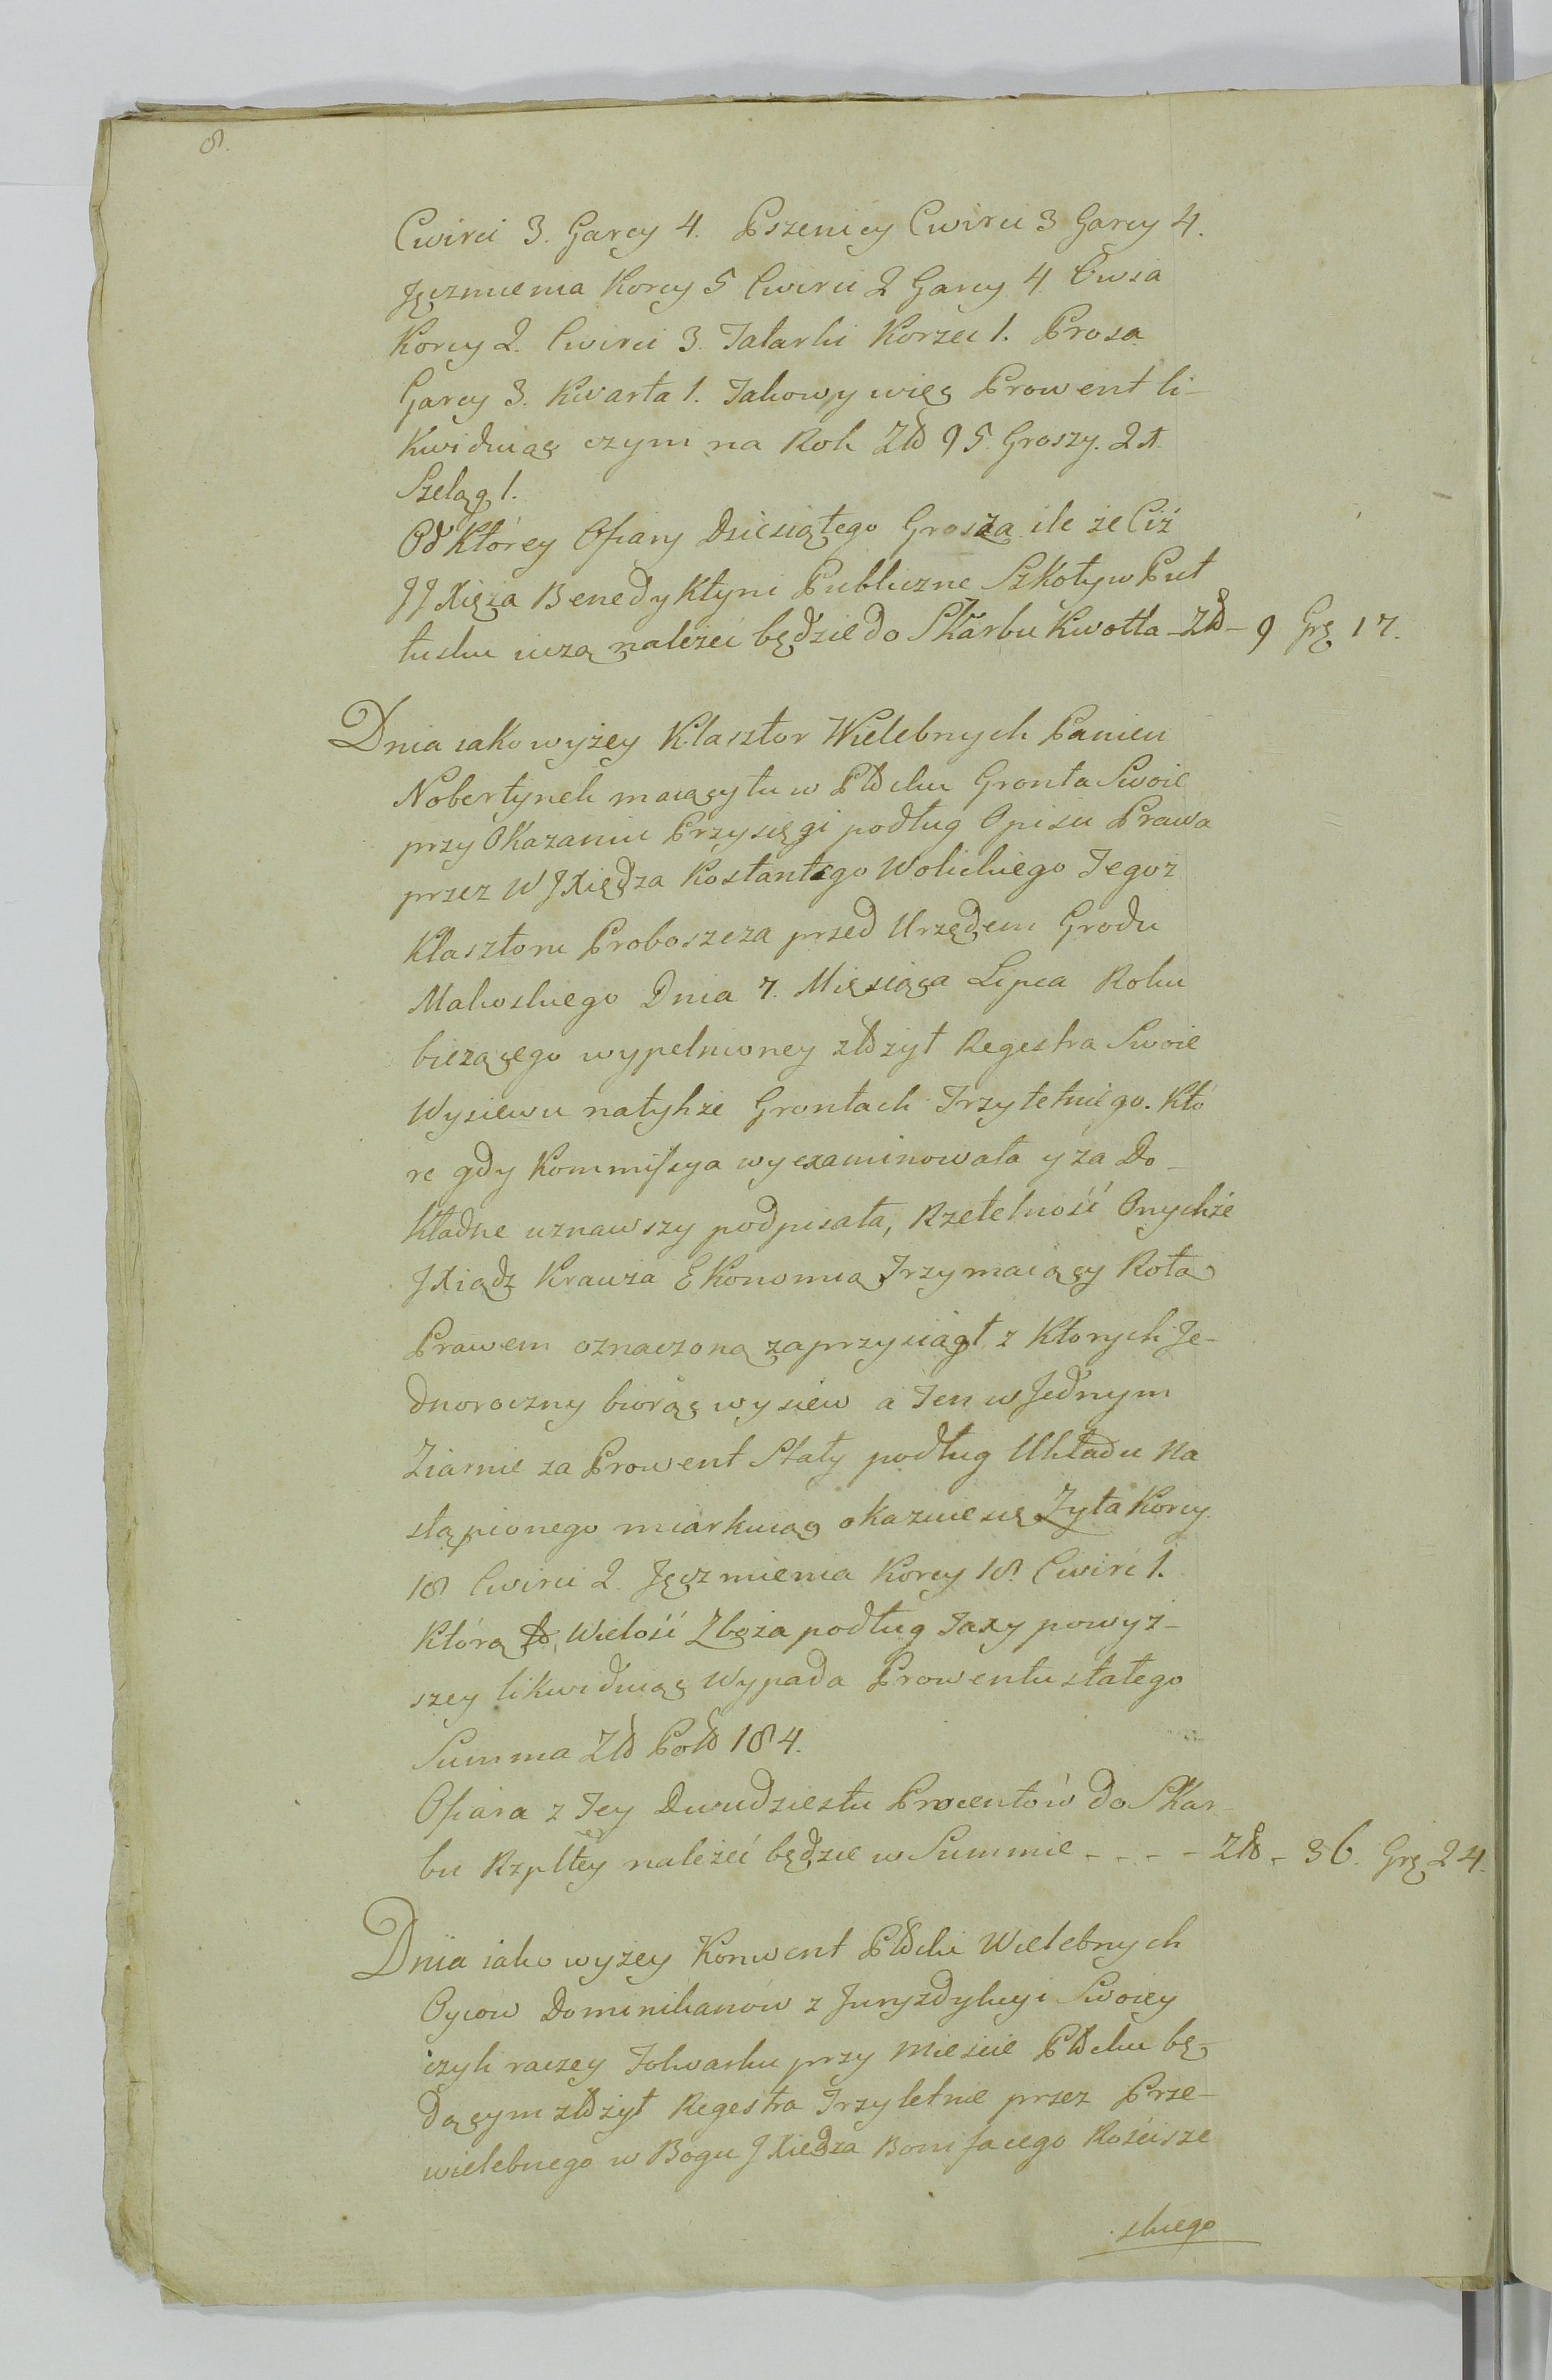 8.
Cwierci 3. Garcy 4. Pszenicy Cwierci 3 Garcy 4.
Jęczmienia Korcy 5 Cwierci 2 Garcy 4 Owsa
Korcy 2. Cwierci 3. Tatarki Korzec 1. Prosa
Garcy 3. Kwarta 1. Takowy więc Prowent li-
kwiduiąc czyni na Rok Złł 95. Groszy. 21.
Szeląg 1.
Od Którey Ofiary Dziesiątego Grosza ile że Ciż
JJ Xięża Benedyktyni Publiczne Szkoły w Puł
tusku uczą należeć będzie do Skarbu Kwotta - Złł - 9 Grę 17.
Dnia iako wyżey Klasztor Wielebnych Panien
Nobertynek maiący tu w Płłcku Gronta Swoie
przy Okazaniu Przysięgi podług Opisu Prawa
przez W JXiędza Kostantego Wolickiego Tegoż
Klasztoru Proboszcza przed Urzędem Grodu
Makoskiego Dnia 7. Miesiąca Lipca Roku
bieżącego wypełnioney złłżył Regestra Swoie
Wysiewu natyhże Grontach Trzyletniego. Któ
re gdy Kommissya wyexaminowała y za Do-
kładne uznawszy podpisała, Rzetelność Onychże
JXiądz Krauza Ekonomią Trzymaiący Rotą
Prawem oznaczoną zaprzysiągł, z Których Je-
dnoroczny biorąc wysiew a Ten w Jednym
Ziarnie za Prowent Stały podług Układu Na
stąpionego miarkuiąc okazuie się Zyta Korcy
18 Cwierci 2. Jęczmienia Korcy 18. Cwierć 1.
Którą to Wielość Zboża podług Taxy powyż-
szey likwiduiąc Wypada Prowentu stałego
Summa Złł Polł 184.
Ofiara z Tey Dwudziestu Procentów do Skar-
bu Rzpltey należeć będzie w Summie - - - - Złł - 36. Grę 24.
Dnia iako wyżey Konwent Płłcki Wielebnych
Oycow Dominikanów z Juryzdykcyi Swoiey
czyli raczey Folwarku przy Mieście Płłcku bę-
dącym złłżył Regestra Trzyletnie przez Prze-
wielebnego w Bogu JXiędza Bonifacego Kościsze
skiego